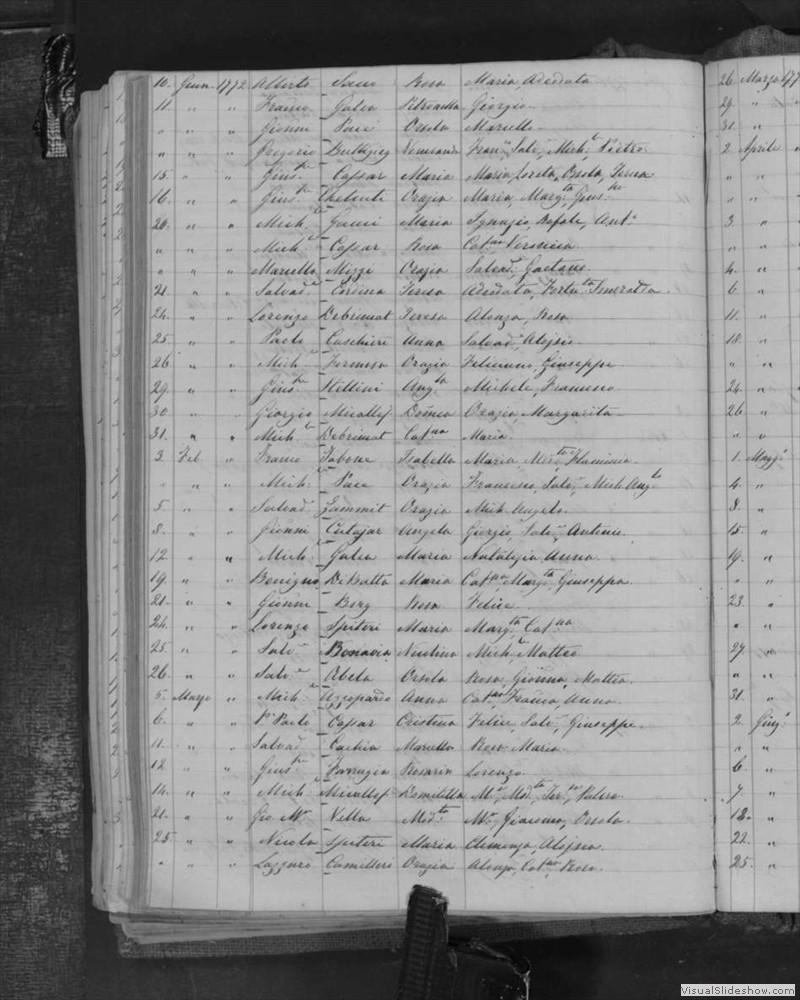 10. Genn. 1772 Alberto Rosa Maria Adeodata
11 " " Franco Galea Petronilla Giorgio
" " " Gionni Pace Orsola Marcello
" " " Gregorio Buttigieg Veneranda Franc. Salv. Mich. Pietro
15 " " Gius. Cassar Maria Maria, Loreta, Orsola, Teresa
16. " " Gius. Chelenti Orazia Maria, Marg.ta
20. " " Mich. Gauci Maria Ignazio, Rafale, Ant.
" " " Mich. Cassar Rosa Cat.na Veronica
" " " Marcello Mizzi Orazia Salvad. Gaetano
21. " " Salvad. Cordina Teresa Adeodata,
24. " " Lorenzo Debrimat Teresa Alonza, Rosa
25. " " Paolo Cuschieri Anna Salvad. Aloisio
26. " " Mich. Formosa Orazia Feliciano, Giuseppe
29. " " Gius. Stellini Ang.la Michele, Francesco
30 " " Giorgio Micallef Domca Orazio Margarita
31. " " Mich. Debrimat Cat.na Maria
3. Feb " Franco Tabone Isabella Maria, Flaminia
" " " Mich. Pace Orazia Francesco, Salv. Mich. Ang.lo
5 " " Salvad. Zammit Orazia Mich. Angelo
8. " " Gionni Cutajar Angela Giorgio, Salv. Antonio
12. " " Mich. Galea Maria Natalizia, Anna
19. " " Benigno DeBatta Maria Cat.na, Marg.ta Giuseppa
21. " " Gionni Borg Rosa Felice
24. " " Lorenzo Spiteri Maria Marg.ta Cat.na
25. " " Salv. Bonavia Mich. Matteo
26. " " Salv. Abela Orsola Rosa, Gionna, Mattea
5. Marzo " Mich. Azzopardo Anna Cat.na Franca Anna
6. " " Paolo Cassar Cristina Felice, Salv. Giuseppe
11. " " Salvad. Cachia Marietta Rosa Maria
12. " " Gius. Farrugia Rosaria Lorenzo
14. " " Mich. Micallef Domitilla
21. " " Gio M. Vella M. Giacomo, Orsola
25. " " Nicola Spiteri Maria Clemenza, Aloisia
" " " Lazzaro Camilleri Orazia Alonza, Cat.na Rosa
26. Marzo 177
29. "
31. "
2 Aprile "
" "
" "
3. "
" "
4. "
6. "
11. "
18. "
" "
24. "
26. "
" "
1. Magg.
4. "
8. "
15. "
19. "
" "
23. "
" "
27. "
" "
31. "
2. Giug.
" "
6. "
7. "
18. "
22. "
25. "
VisualSlideshow.com